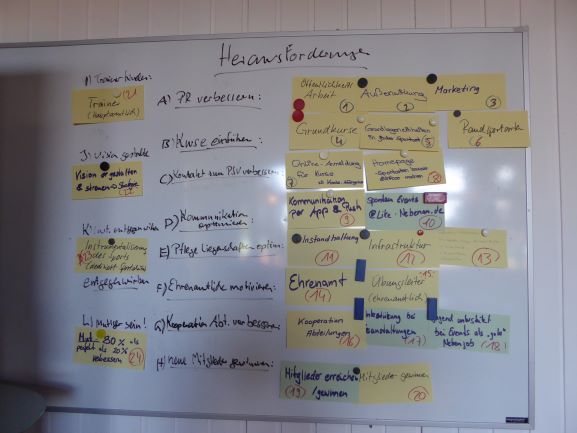 Herausforderungen
I) Trainer finden:
Trainer
(Hauptamtlich)
21
J) Vision gestalten
Vision
gestalten
&
22
Instrumentalisierung
des Sports
23
entgegenwirken
L) Mutiger sein!
Mut 80% als
perfekt als 20%
verbessern
24
A) PR verbessern:
B) Kurse einführen:
C) Kontakt zum PSV verbessern:
D) Kommunikation
optimieren:
E) Pflege Liegenschaften optim.:
F) Ehrenamtliche motivieren:
G) Kooperation Abt. verbessern:
H) neue Mitglieder gewinnen:
Öffentlichkeits
Arbeit
1
Außenwirkung
2
Marketing
3
Grundkurse
4
5
Randsportarten
6
Online-Anmeldung
für Kurse
7
Homepage
8
Kommunikation
per App & Push
9
spenden Events
@Lite - Nebenan.de
10
Instandhaltung
11
Infrastruktur
12
13
Ehrenamt
14
Übungsleiter
(ehrenamtlich)
15
Kooperation
Abteilungen
16
17
Jugend unterstützt
bei Events als "Job"
Nebenjob
18
Mitglieder erreichen
/gewinnen
19
Mitglieder gewinnen
20